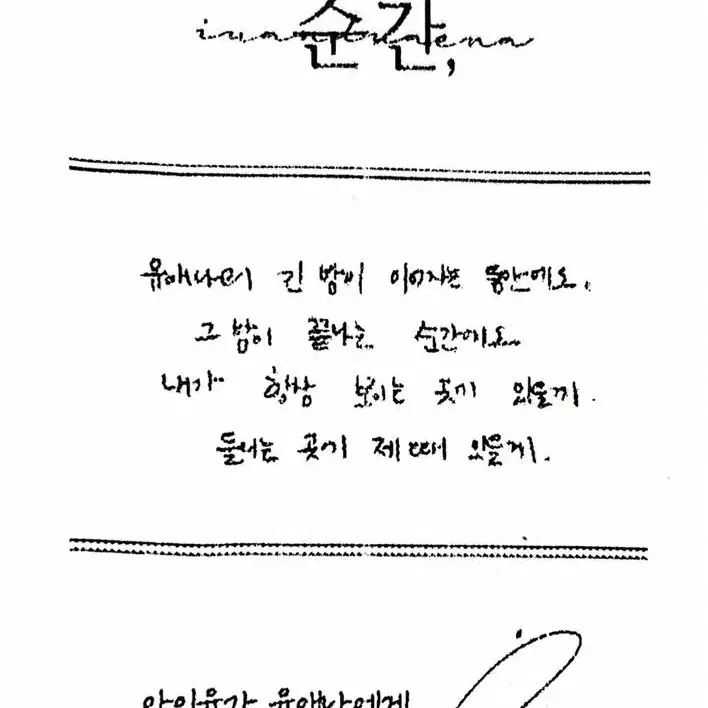 순간,
유애나의 긴 밤이 이어지는 동안에도,
그 밤이 끝나는 순간에도
내가 항상 보이는 곳에 있을게.
들리는 곳에 제때 있을게.
아이유가 유애나에게